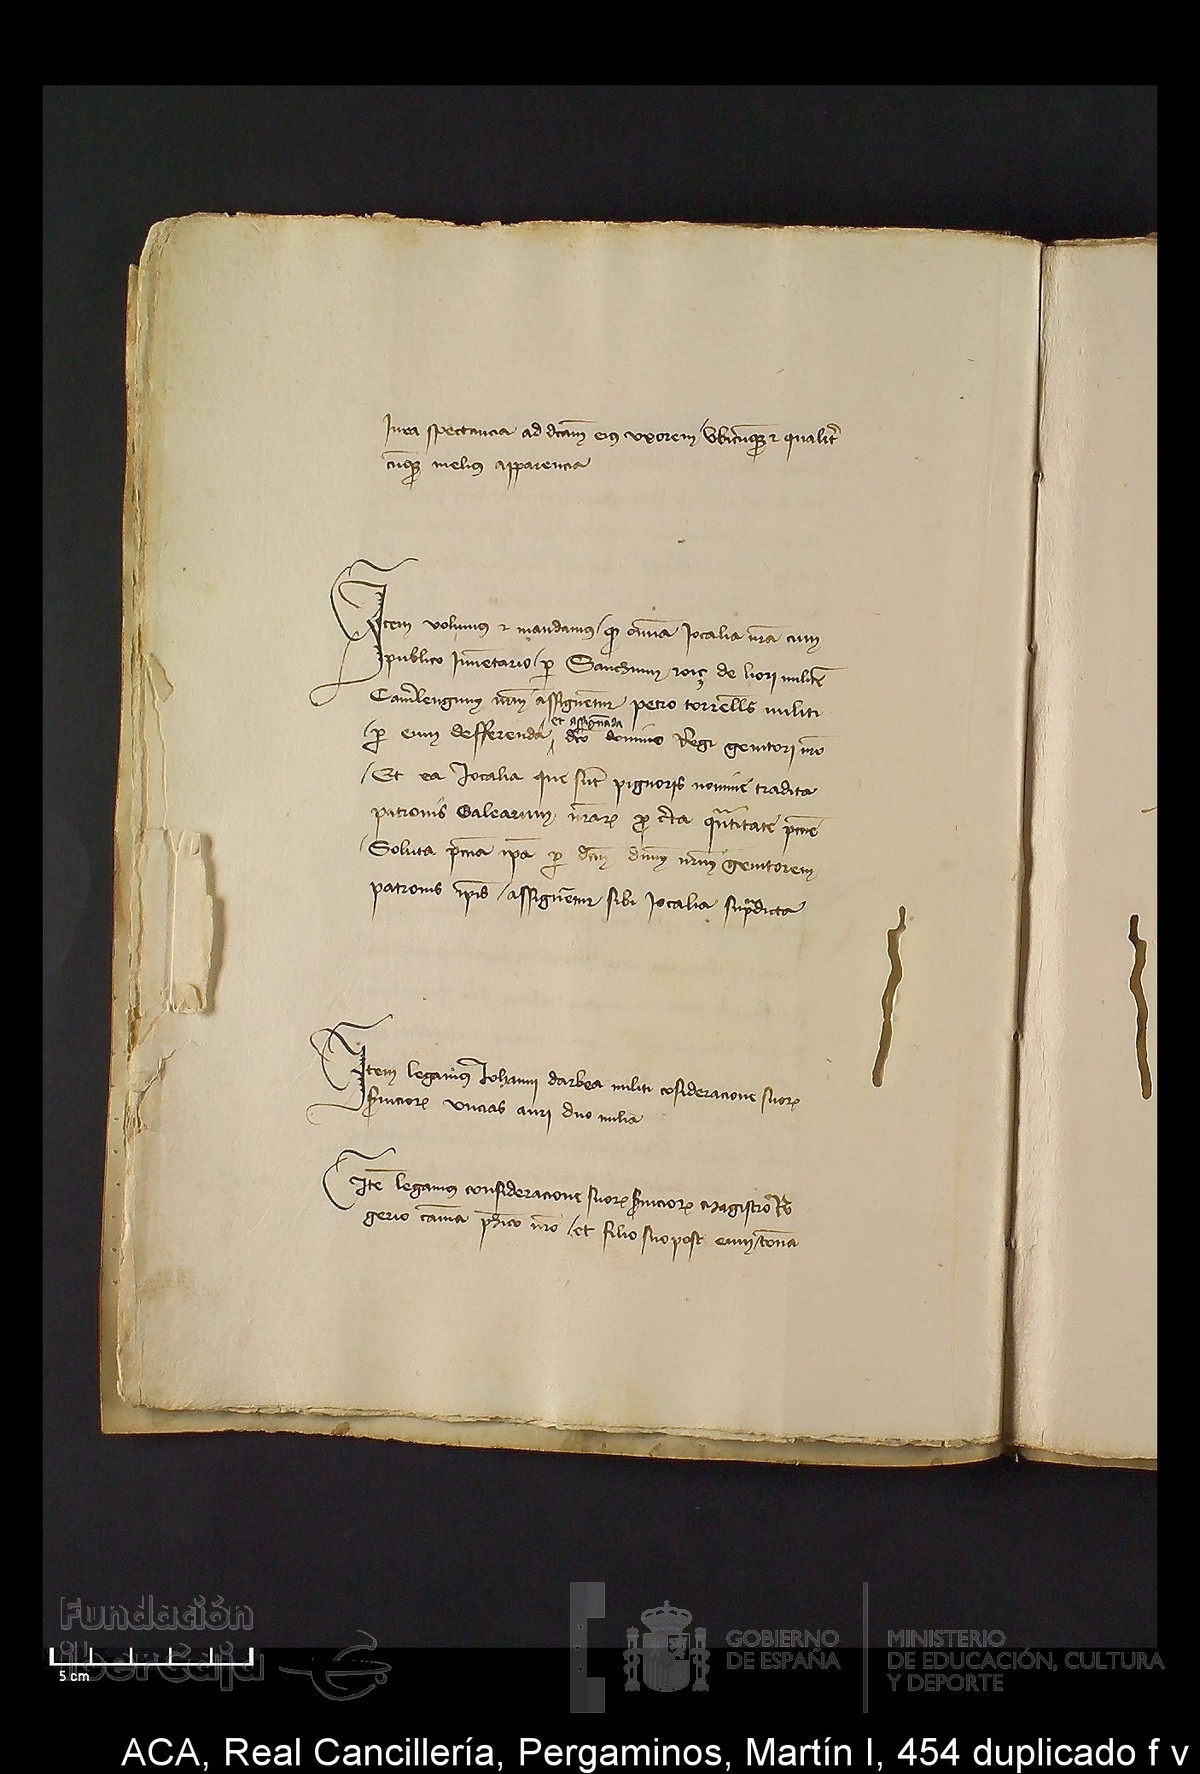 Jura spectancia ad dcam eius uxorem / ubicumq3 et qualit
cumq3 melius apparencia
Item volumus et mandamus / q omnia Jocalia nra cum
publico Inventario / per Sanchium roiç de liori militē
Camlengum nrm assignentur petro torrells militi
/ per eum defferenda et assignada dco domino Regi genitori nro
/ Et ea Jocalia que sunt pignoris nomine tradita
patronis Galearum nrarum pro certa quantitate pecunie
Soluta pecunia ipsa per dcm dnm nrm genitorem
patronis ipsis / assignentur sibi Jocalia supradicta
Item legamus Johanni darbea militi cosideracione suor
serviciorum uncias auri duo milia
Itē legamus consideracione suorum serviciorum magistro Ro
gerio phico nro / et filio suo post eum /
Fundación
iberCaja
5 cm
GOBIERNO
DE ESPAÑA
MINISTERIO
DE EDUCACIÓN, CULTURA
Y DEPORTE
ACA, Real Cancillería, Pergaminos, Martín I, 454 duplicado f v